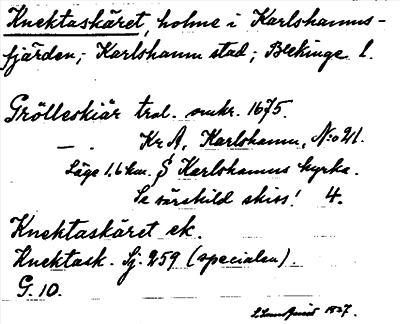 Knektaskäret, holme i Karlshamns-
fjärden; Karlshamn stad; Blekinge l.
Grölleskiär tral. omkr. 1675.
— . Kr A, Karlshamn, No 21.
Läge 1,6 km. S Karlshamns kyrka.
Se särskild skiss! 4.
Knektaskäret ek.
Knektask. Sj. 259 (specialen).
G. 10.
1927.